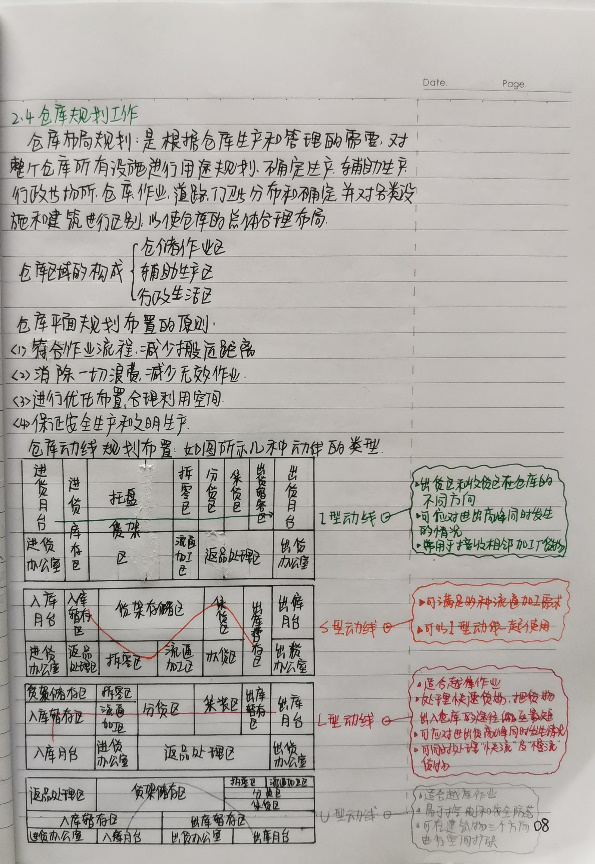 Date.
Page.
2.4 仓库规划工作
仓库布局规划:是根据仓库生产和管理的需要,对
整个仓库所有设施进行用途规划,确定生产、辅助生产
行政办场所、仓库作业、道路、门卫分布和确定,并对各类设
施和建筑进行区别,以使仓库的总体合理布局.
仓库区域的构成
仓储作业区
辅助生产区
行政生活区
仓库平面规划布置的原则:
<1>符合作业流程,减少搬运距离
<2>消除一切浪费,减少无效作业.
<3>进行优化布置,合理利用空间.
<4>保证安全生产和文明生产.
仓库动线规划布置:如图所示几种动线的类型.
进货月台 进货库存区 托盘货架区 拆零区 分货区 集货区 出货暂存区 出货月台
进货办公室 流通加工区 返品处理区 出货办公室
I型动线
•出货区和收货区在仓库的
不同方向
•可应对进出高峰同时发生
的情况
入库月台 入库暂存区 货架存储区 集货区 出库暂存区 出库月台
进货办公室 返品处理区 拆零区 流通加工区 分货区 出货办公室
S型动线
•可满足多种流通加工需求
•可与I型动线一起使用
拆零区
入库暂存区 流通加工区 分货区 集货区 出库暂存区 出库月台
入库月台 进货办公室 返品处理区 出货办公室
L型动线
•适合越库作业
•处理快速货物
•可应对进出货高峰同时发生情况
•可同时处理"快流"与"慢流"
货物
返品处理区 货架储存区 拆零区 流通加工区
分货区
集货区
入库暂存区 出库暂存区
进货办公室 入库月台 出货办公室 出库月台
U型动线
•适合越库作业
08